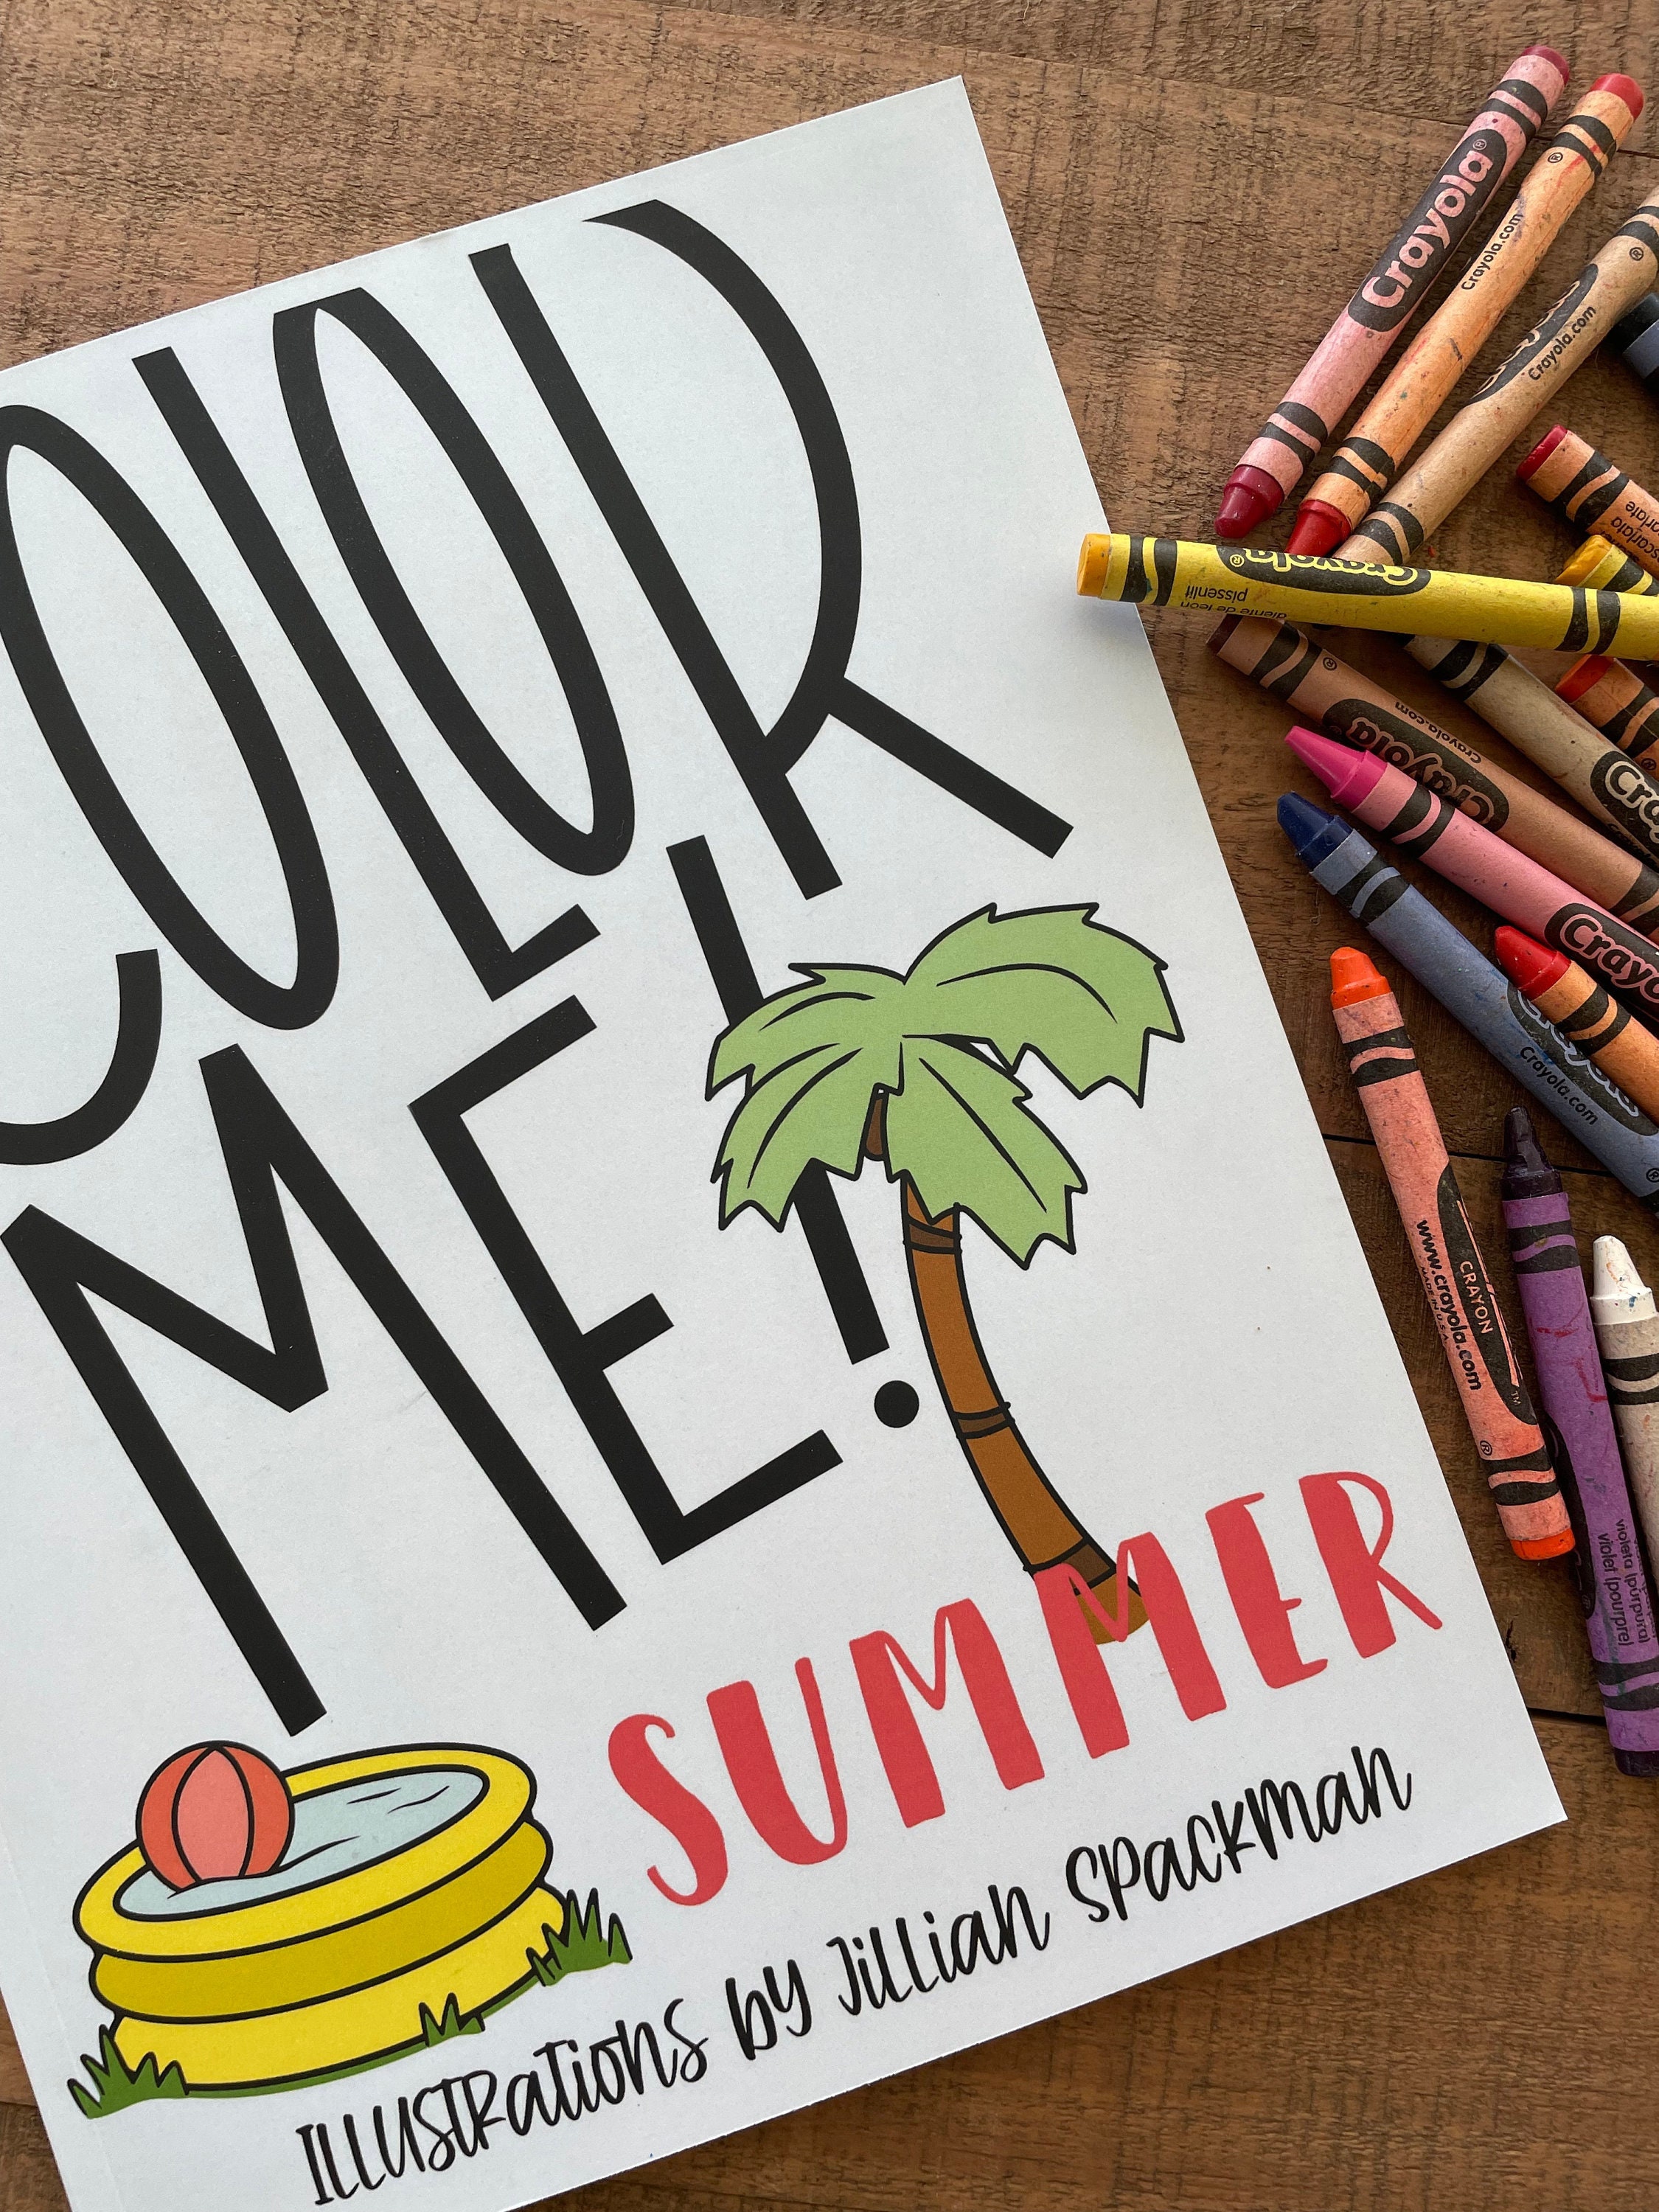 COLOR
ME!
SUMMER
ILLUSTRATIONS BY JILLIAN SPACKMAN
Crayola®
Crayola.com
®
Crayola.com
®
escarlata
Crayola®
pissenlit
diente de león
Crayola
Crayola.com
®
Cra
Crayo
Crayola
Crayola.com
®
CRAYON
™
www.crayola.com
MADE IN U.S.A.
®
violeta (púrpura)
violet (pourpre)